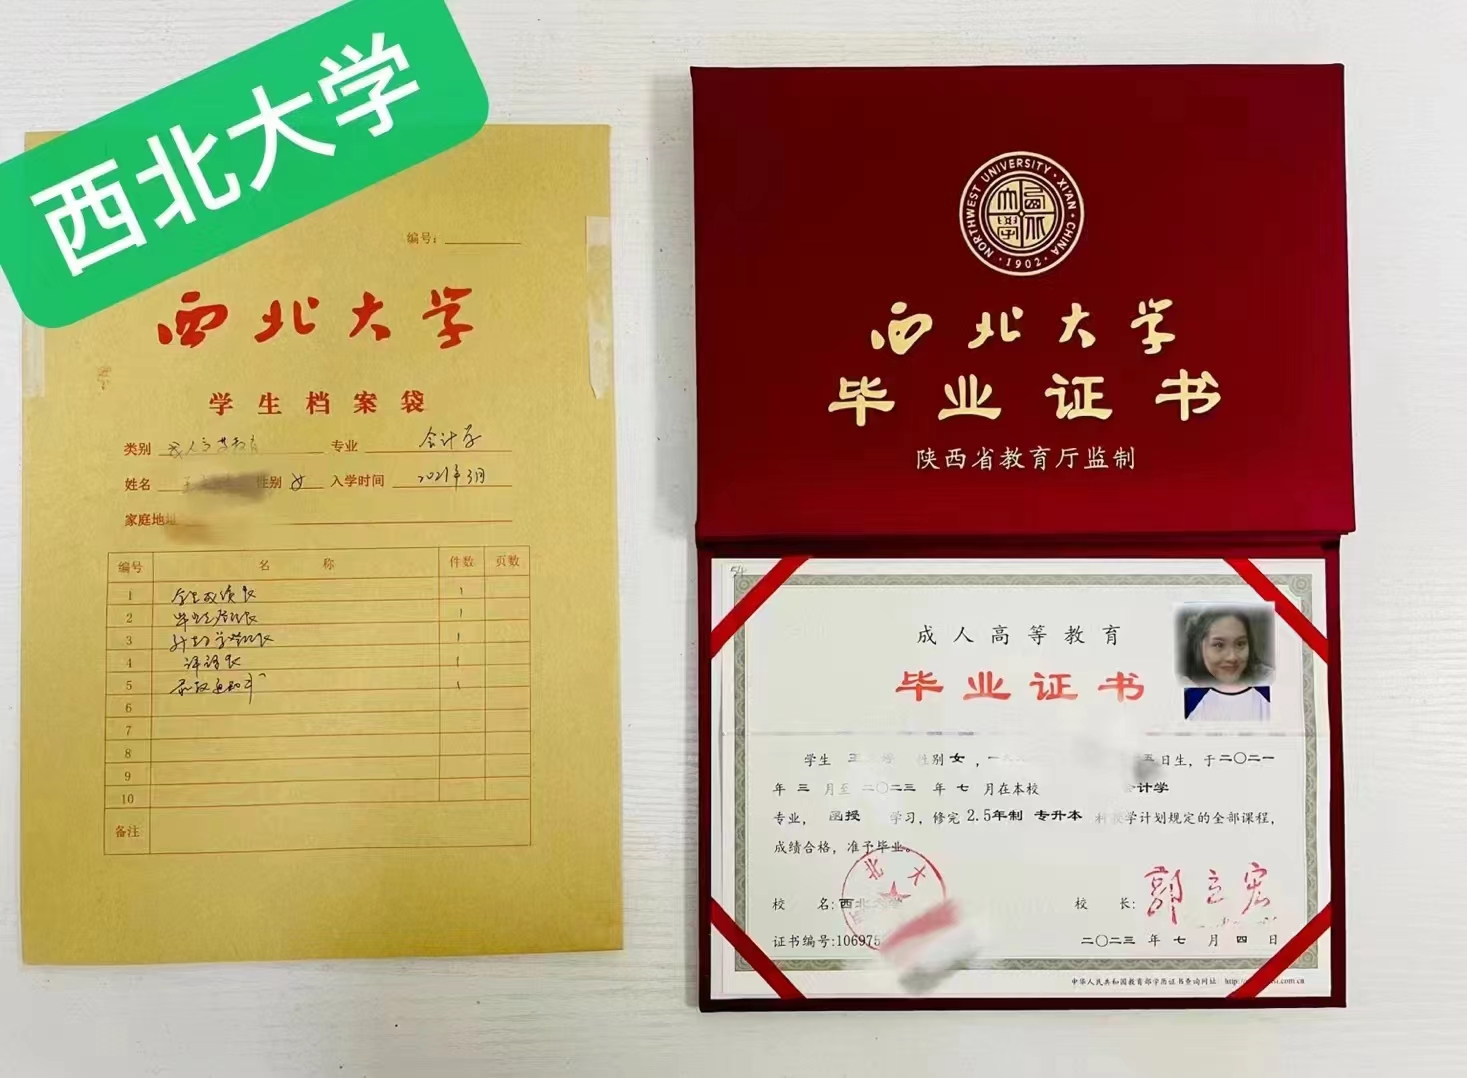 西北大学
编号:
西北大学
学生档案袋
类别 成人高等教育 专业 会计学
姓名 性别 女 入学时间 2021年3月
家庭地址
编号 名 称 件数 页数
1 学生成绩表 1
2 毕业生登记表 1
3 1
4 评语表 1
5 录取通知书 1
6
7
8
9
10
备注
NORTHWEST UNIVERSITY · XI'AN · CHINA
· 1902 ·
西北大学
毕业证书
陕西省教育厅监制
54
成人高等教育
毕业证书
学生 王 性别 女 ,一九 五 日生, 于二〇二一
年 三 月至 二〇二三 年 七 月在本校 会计学
专业, 函授 学习, 修完 2.5年制 专升本 科教学计划规定的全部课程,
成绩合格, 准予毕业。
校 名: 西北大学
校 长: 郭立宏
证书编号:106975
二〇二三 年 七 月 四 日
中华人民共和国教育部学历证书查询网址: http://